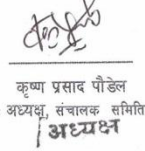 कृष्ण प्रसाद पौडेल
अध्यक्ष, संचालक समिति
अध्यक्ष